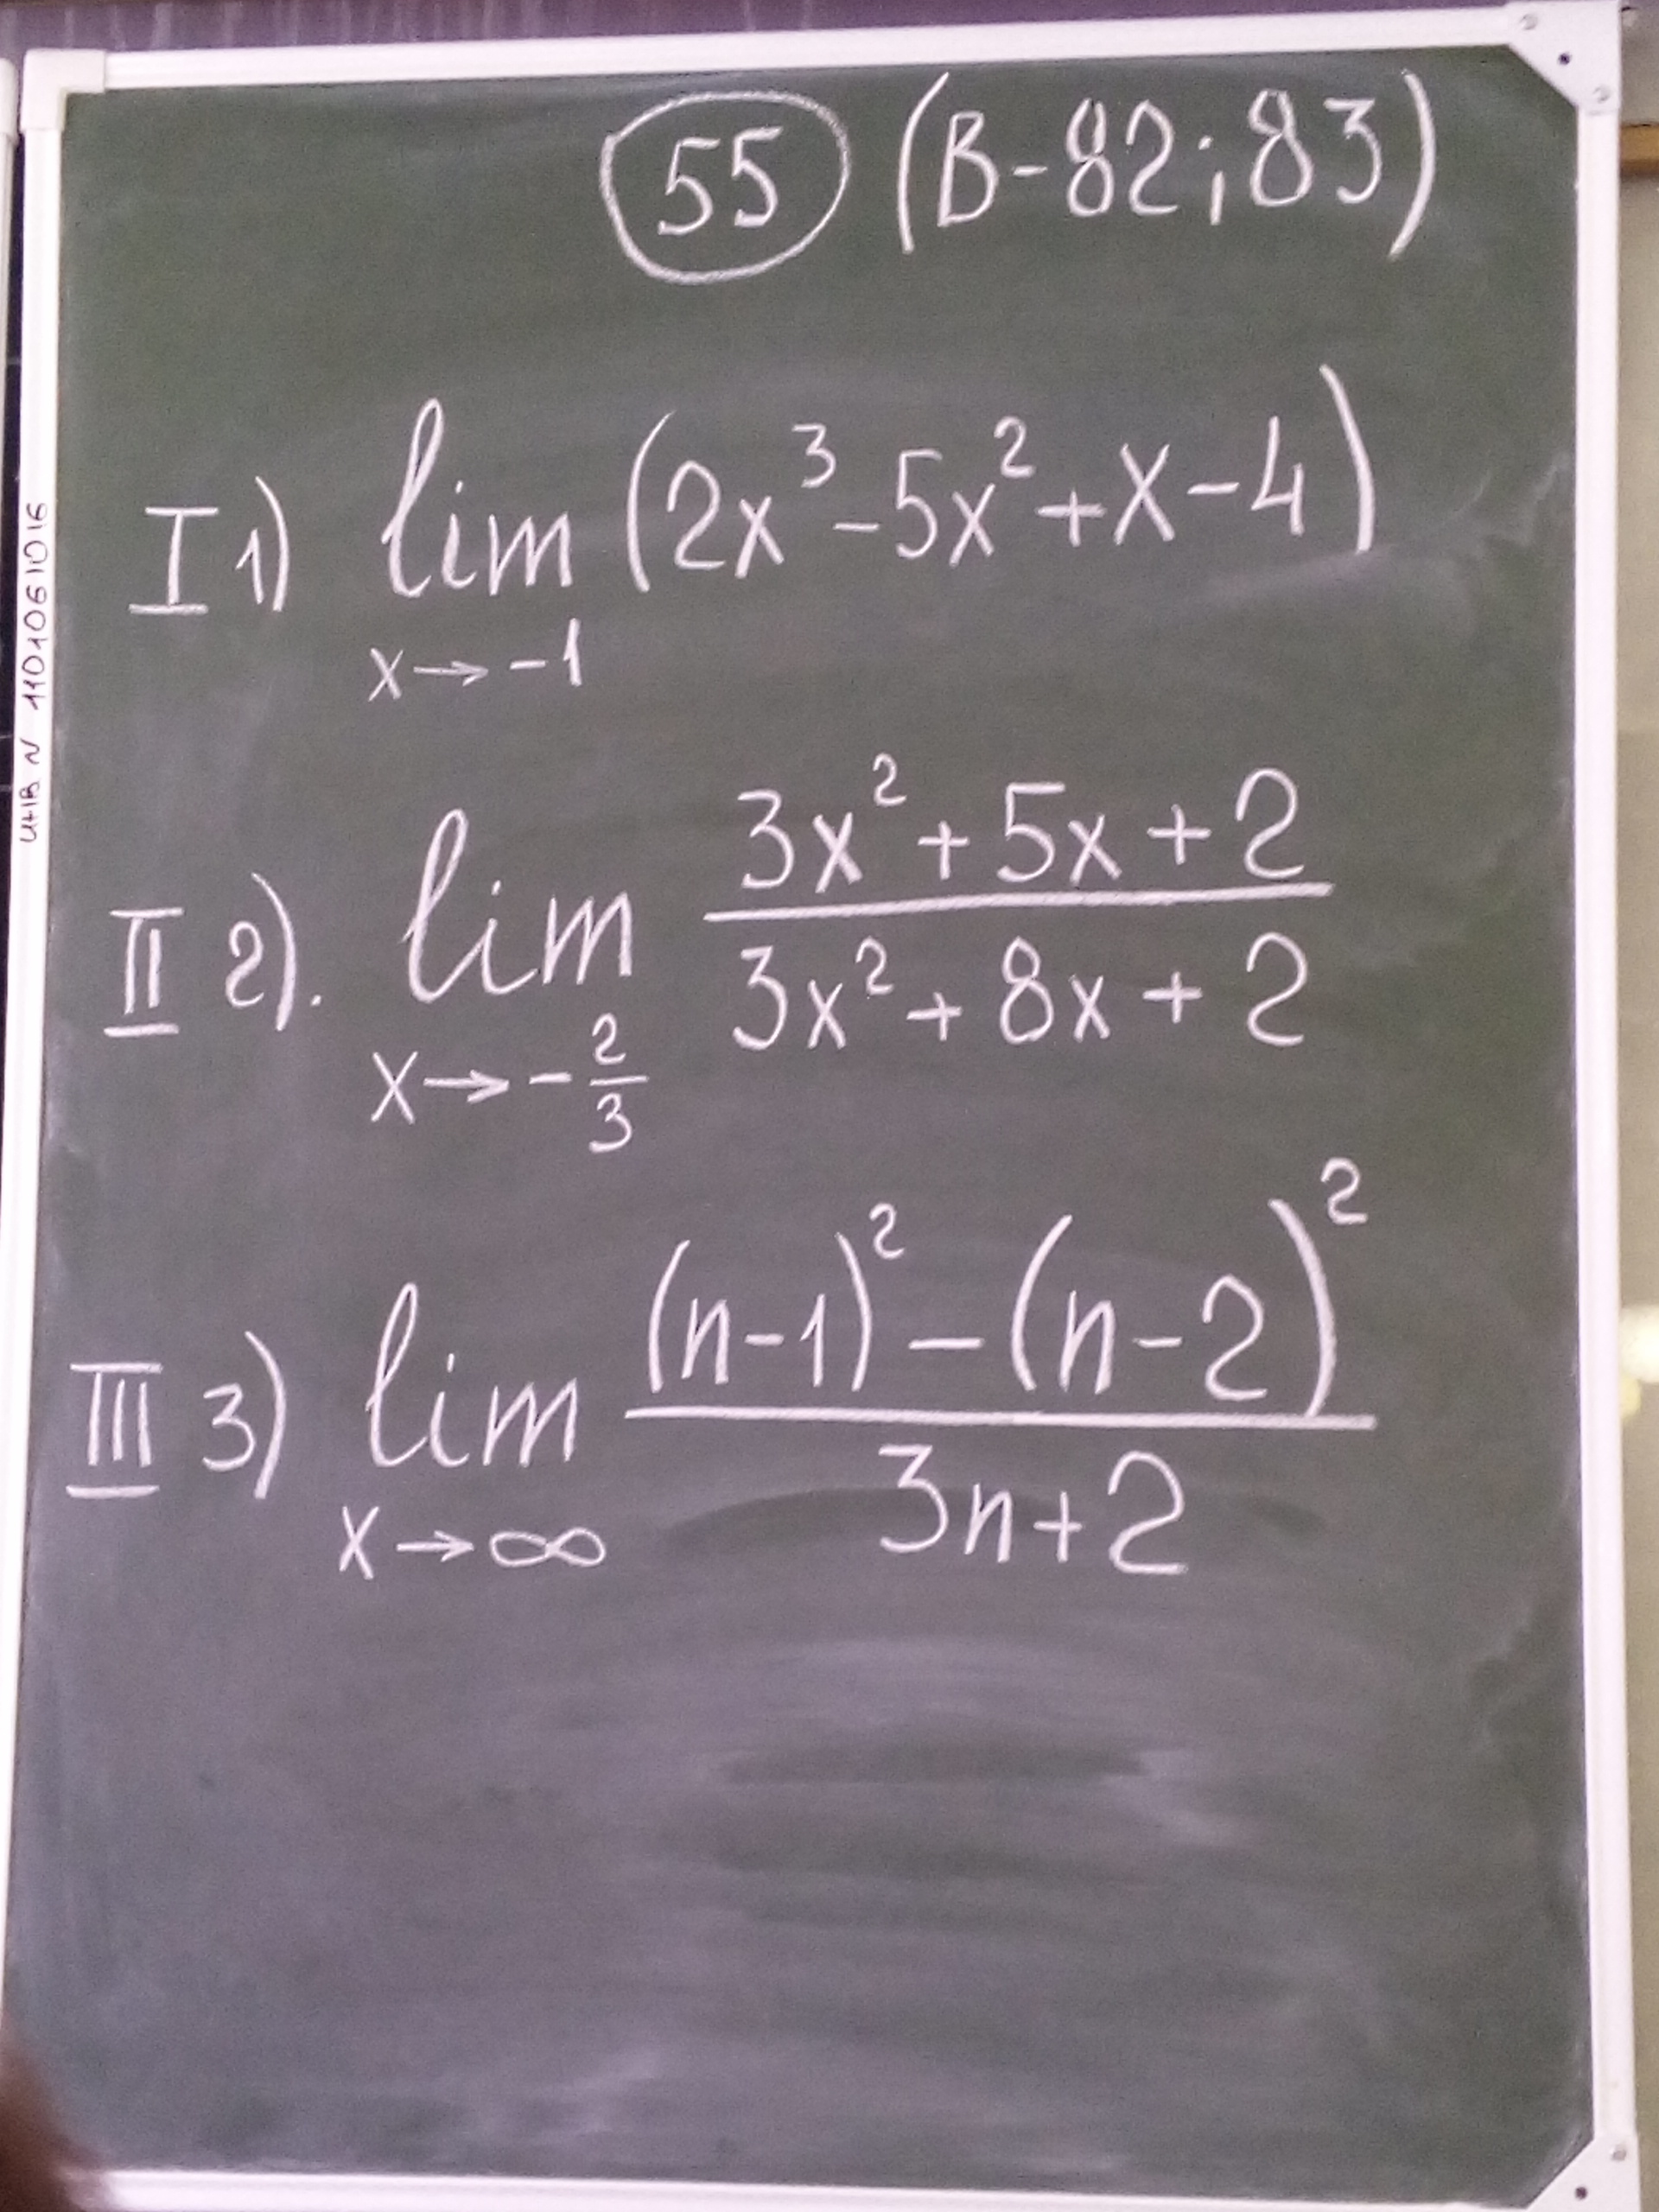 55 (В-82; 83)
I 1) lim (2x³-5x²+x-4)
x→-1
II 2). lim (3x²+5x+2)/(3x²+8x+2)
x→-2/3
III 3) lim ((n-1)²-(n-2)²)/(3n+2)
x→∞
ИНВ N 1101061016